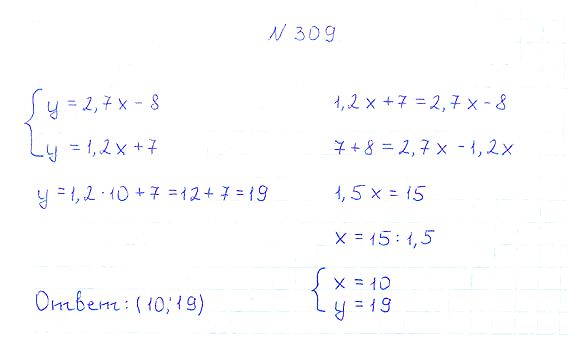 N 309
y = 2,7x - 8
y = 1,2x + 7
y = 1,2 · 10 + 7 = 12 + 7 = 19
1,2x + 7 = 2,7x - 8
7 + 8 = 2,7x - 1,2x
1,5x = 15
x = 15 : 1,5
x = 10
y = 19
Ответ: (10; 19)